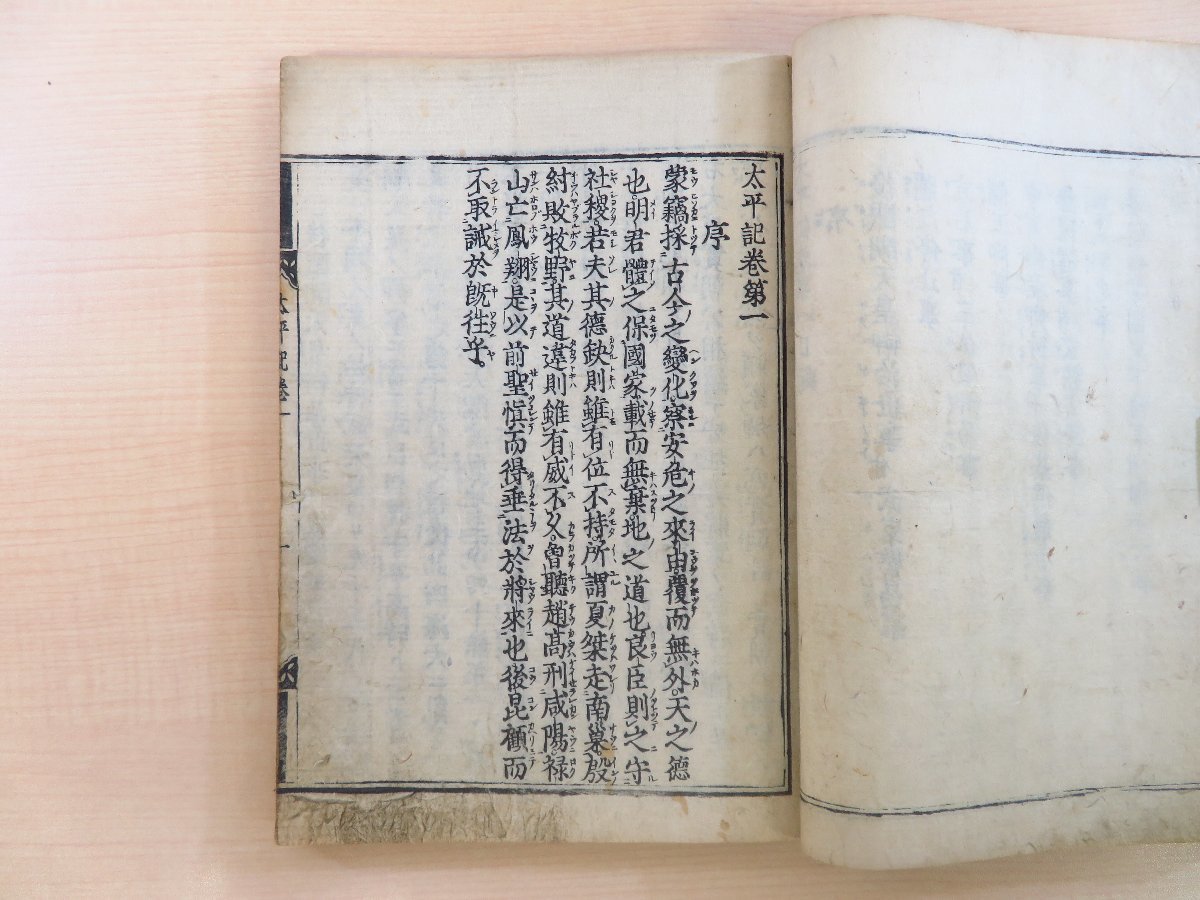 太平記卷第一
序
蒙竊採古今之變化察安危之來由覆而無外天之德
也明君體之保國家載而無棄地之道也良臣則之守
社稷若夫其德缺則雖有位不持所謂夏桀走南巢殷
紂敗牧野其道違則雖有威不久曾聽趙高刑咸陽祿
山亡鳳翔是以前聖愼而得垂法於將來也後昆顧而
不取誡於既往乎。
太平記卷一